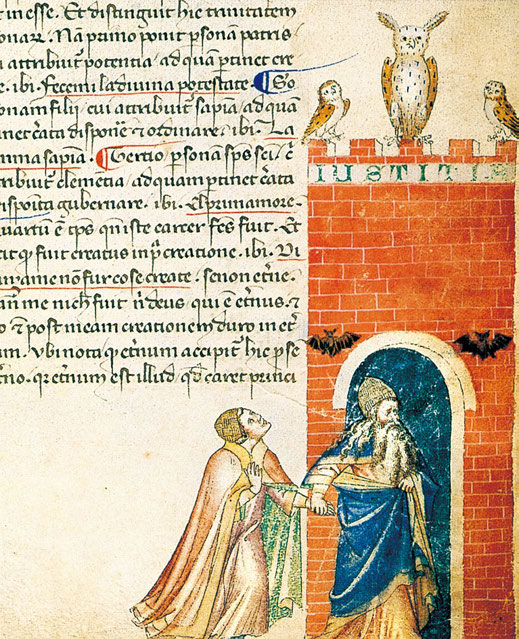 t inesse. Et distinguit hic trinitatem
onarū. Nā primo ponit ꝑsonā patris
i attribuit᷑ potentia, ad quā ꝑtinet cre
e. ibi. Fecemi la diuina potestate. ¶ So
onam filii, cui attribuit᷑ sapīa, ad quā
inet c̄ata disponē ⁊ ordinare. ibi. La
mma sapīa. ¶ Tertio ꝑsonā sp̄s sc̄i. c̄
tribuit᷑ clemētia, ad quam ꝑtinet c̄ata
isposita gubernare. ibi. El primo amore.
quartū ē tp̄s quo iste carcer fc̄s fuit. Et
cit ꝙ fuit creatus in pª creatione. ibi.
ame non fur cose create. se non et̄ne.
an̄ me nichil fuit nı deus, qui ē et̄nus, ⁊
o ⁊ post meam creationem duro in et̄
um. Ubi nota ꝙ et̄num accipit᷑ hic ꝓ se
t̄no. qr et̄num est illud, qd̄ caret princi
IUSTITIA